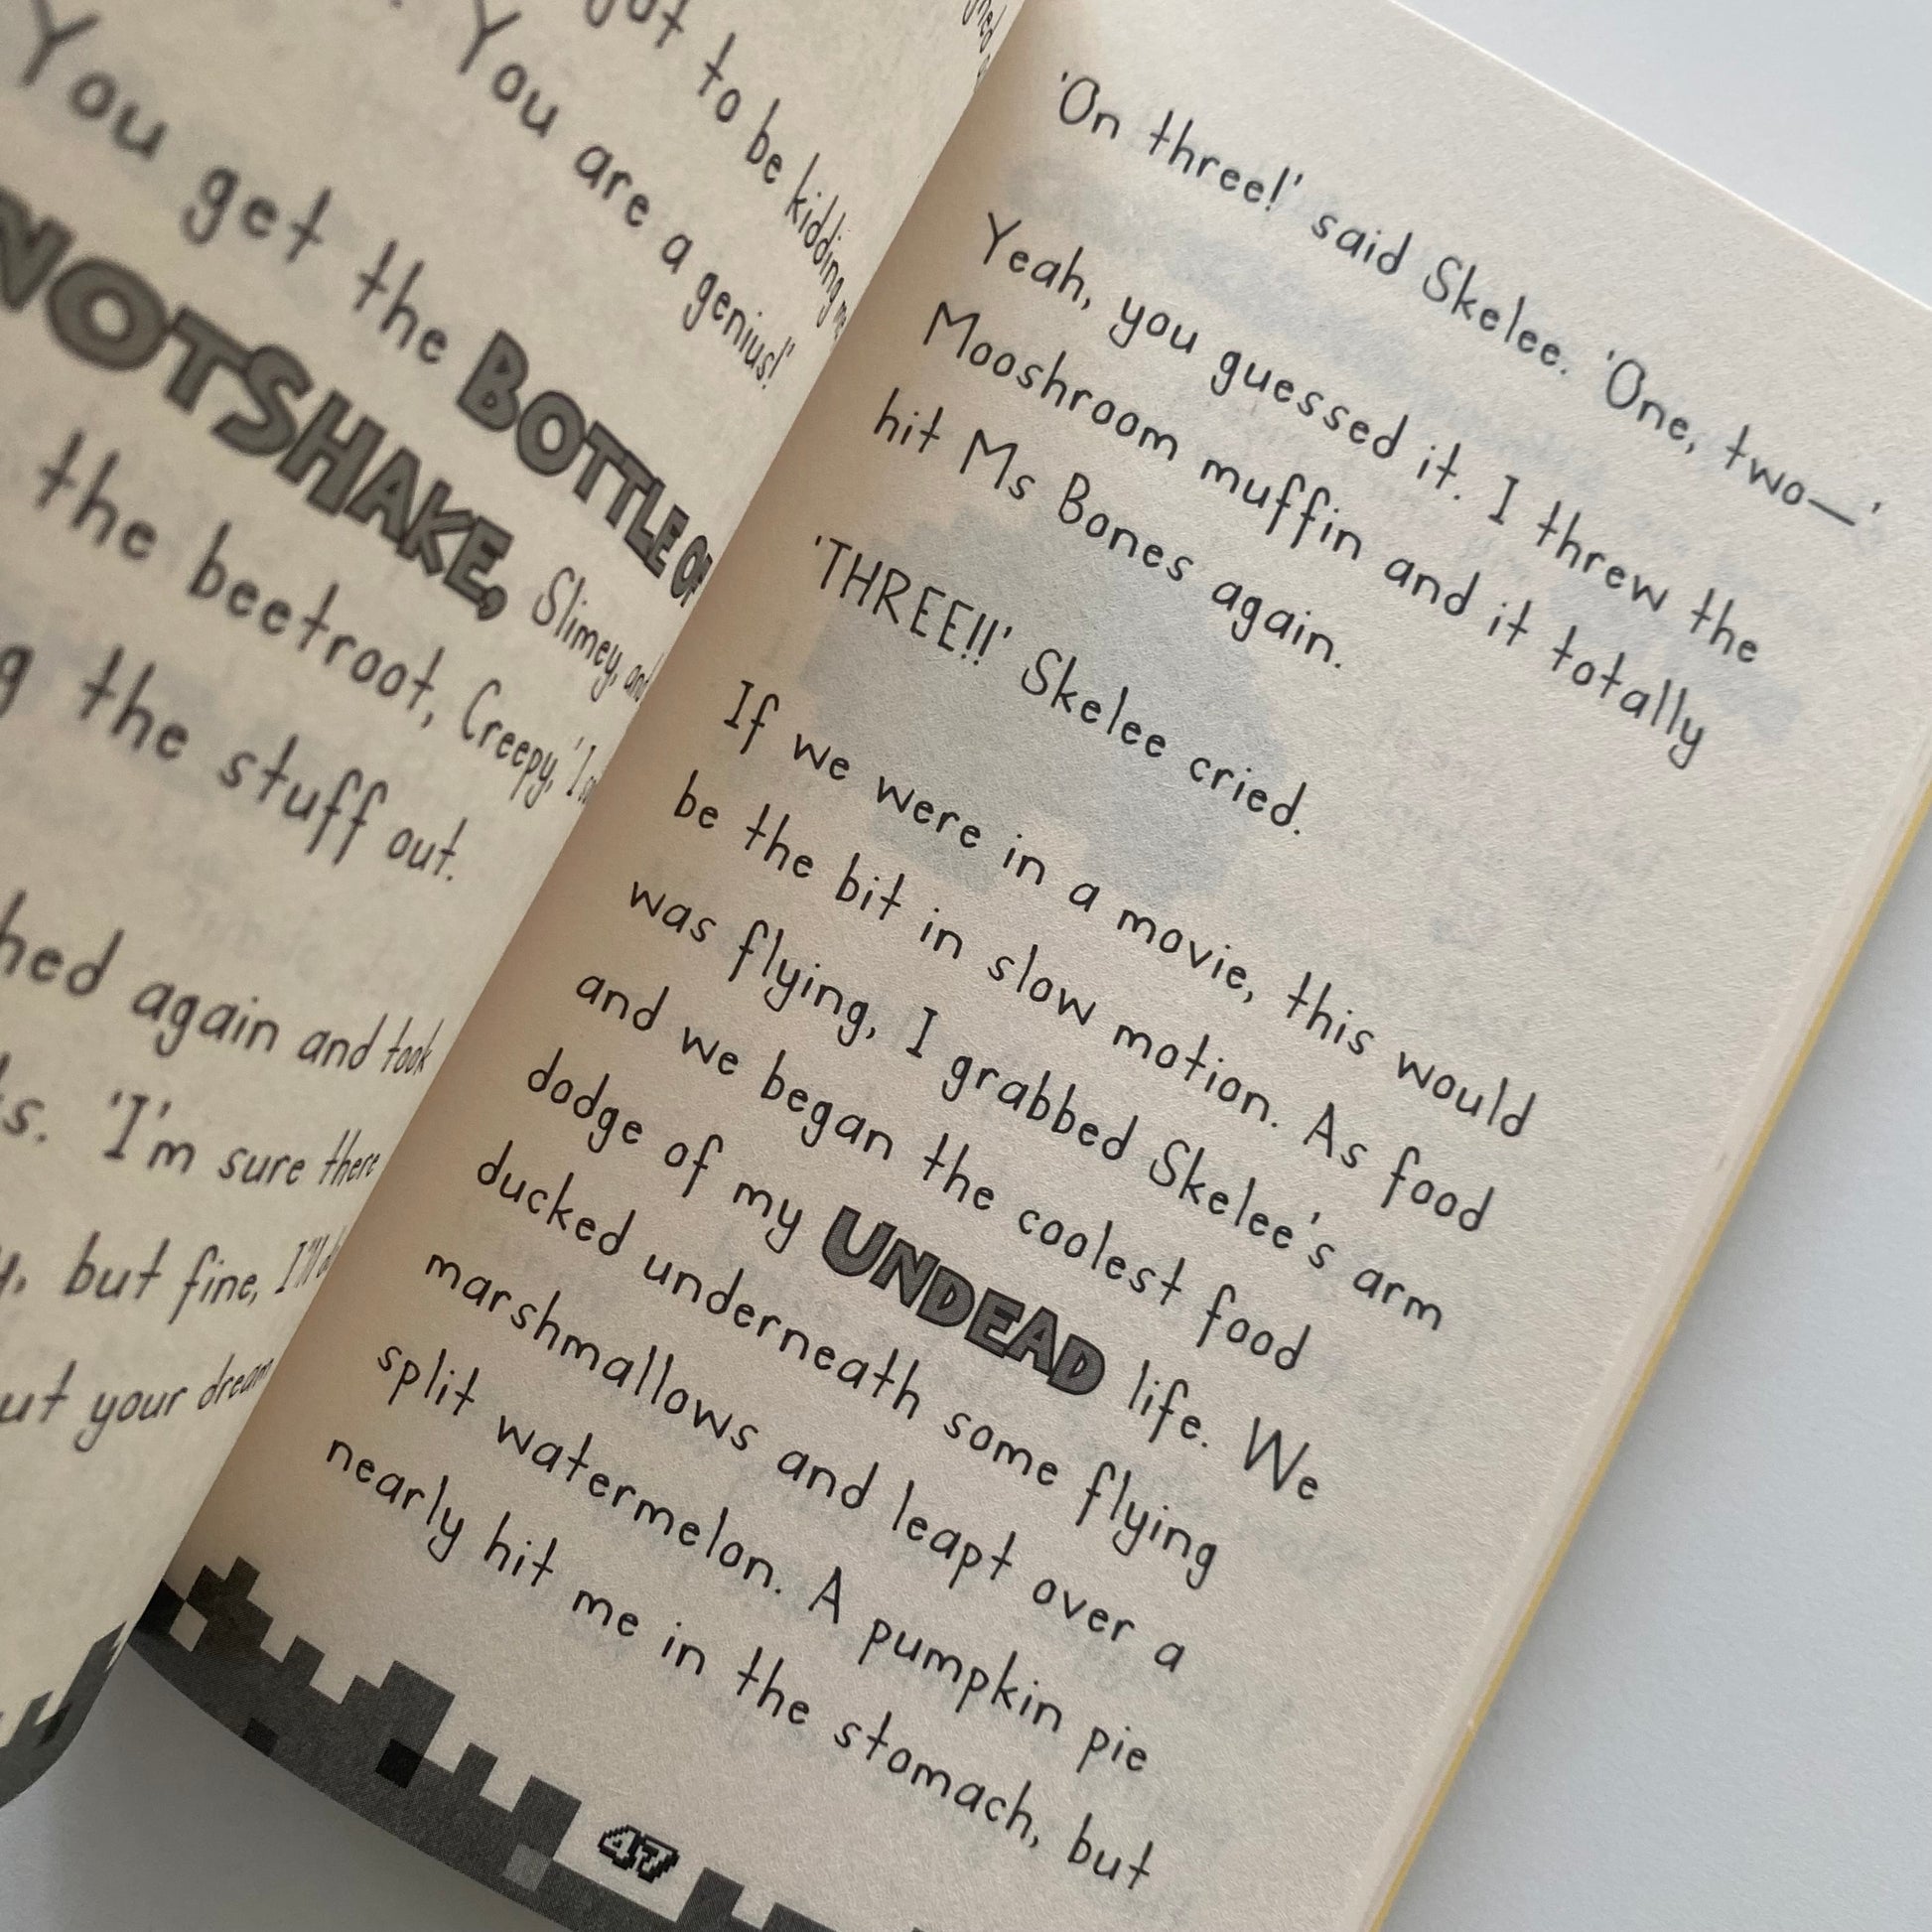 got to be kidding
You are a genius!'
You get the BOTTLE OF
NOTSHAKE, Slimey, and
the beetroot, Creepy, 'I
the stuff out.
again and took
'I'm sure there
but fine, I'll
your dream
'On three!' said Skelee. 'One, two—'
Yeah, you guessed it. I threw the
Mooshroom muffin and it totally
hit Ms Bones again.
'THREE!!' Skelee cried.
If we were in a movie, this would
be the bit in slow motion. As food
was flying, I grabbed Skelee's arm
and we began the coolest food
dodge of my UNDEAD life. We
ducked underneath some flying
marshmallows and leapt over a
split watermelon. A pumpkin pie
nearly hit me in the stomach, but
47